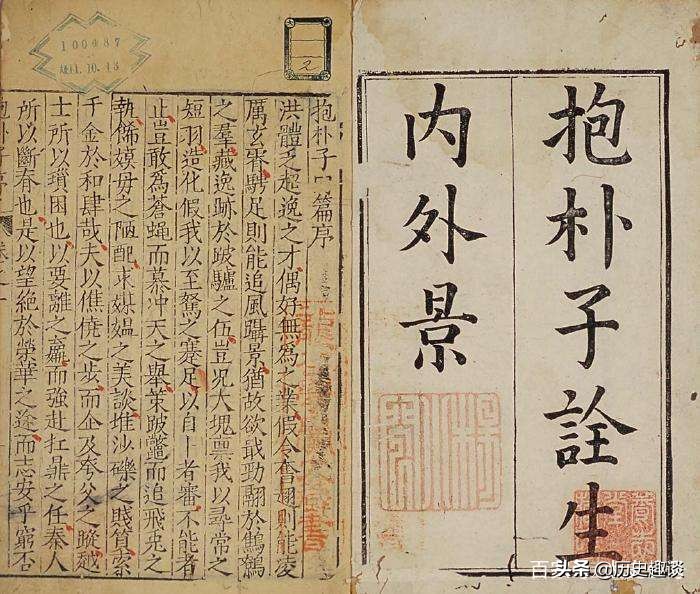 抱朴子詮生
内外景
100087
11.10.13
2
抱朴子 篇序
洪體乏超逸之才偶好無爲之業假令奮翅則能凌
厲玄霄騁足則能追風躡景猶故欲戢勁翮於鷦鷃
之羣藏逸跡於跛驢之伍豈况大塊禀我以尋常之
短羽造化假我以至駑之蹇足以自卜者審不能者
止豈敢爲蒼蝇而慕冲天之舉策跛鼈而追飛兎之
軌飾嫫母之陋醜求媒媼之美談堆沙礫之賤質索
千金於和肆哉夫以僬僥之步而企及夸父之蹤越
士所以瑣困也以要離之羸而強赴扛鼎之任秦人
所以斷脊也是以望絕於榮華之途而志安乎窮否
百家号@历史趣谈